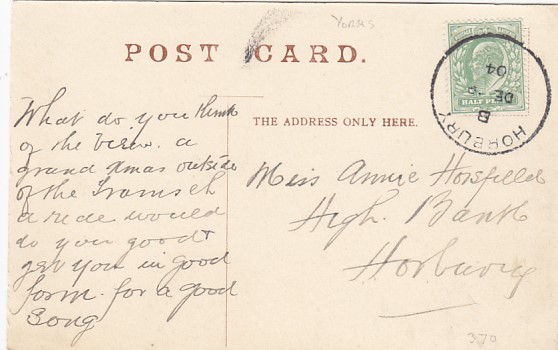 Yorks
POST CARD.
HALF PE
HORBURY
B
DE
04
THE ADDRESS ONLY HERE.
What do you think
of the View. a
grand Xmas outside
of the Trams eh
a ride would
do you good &
get you in good
form for a good
Song
Miss Annie Horsfield
High Bank
Horbury
3.70